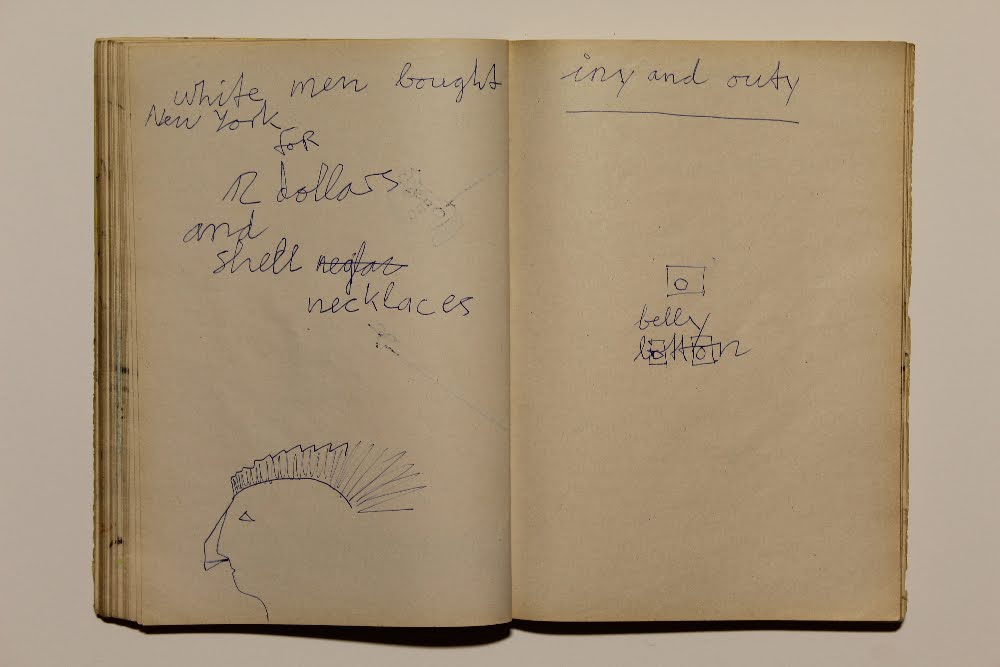 white men bought
New York
for
12 dollars
and
shell
necklaces
iny and outy
belly
button